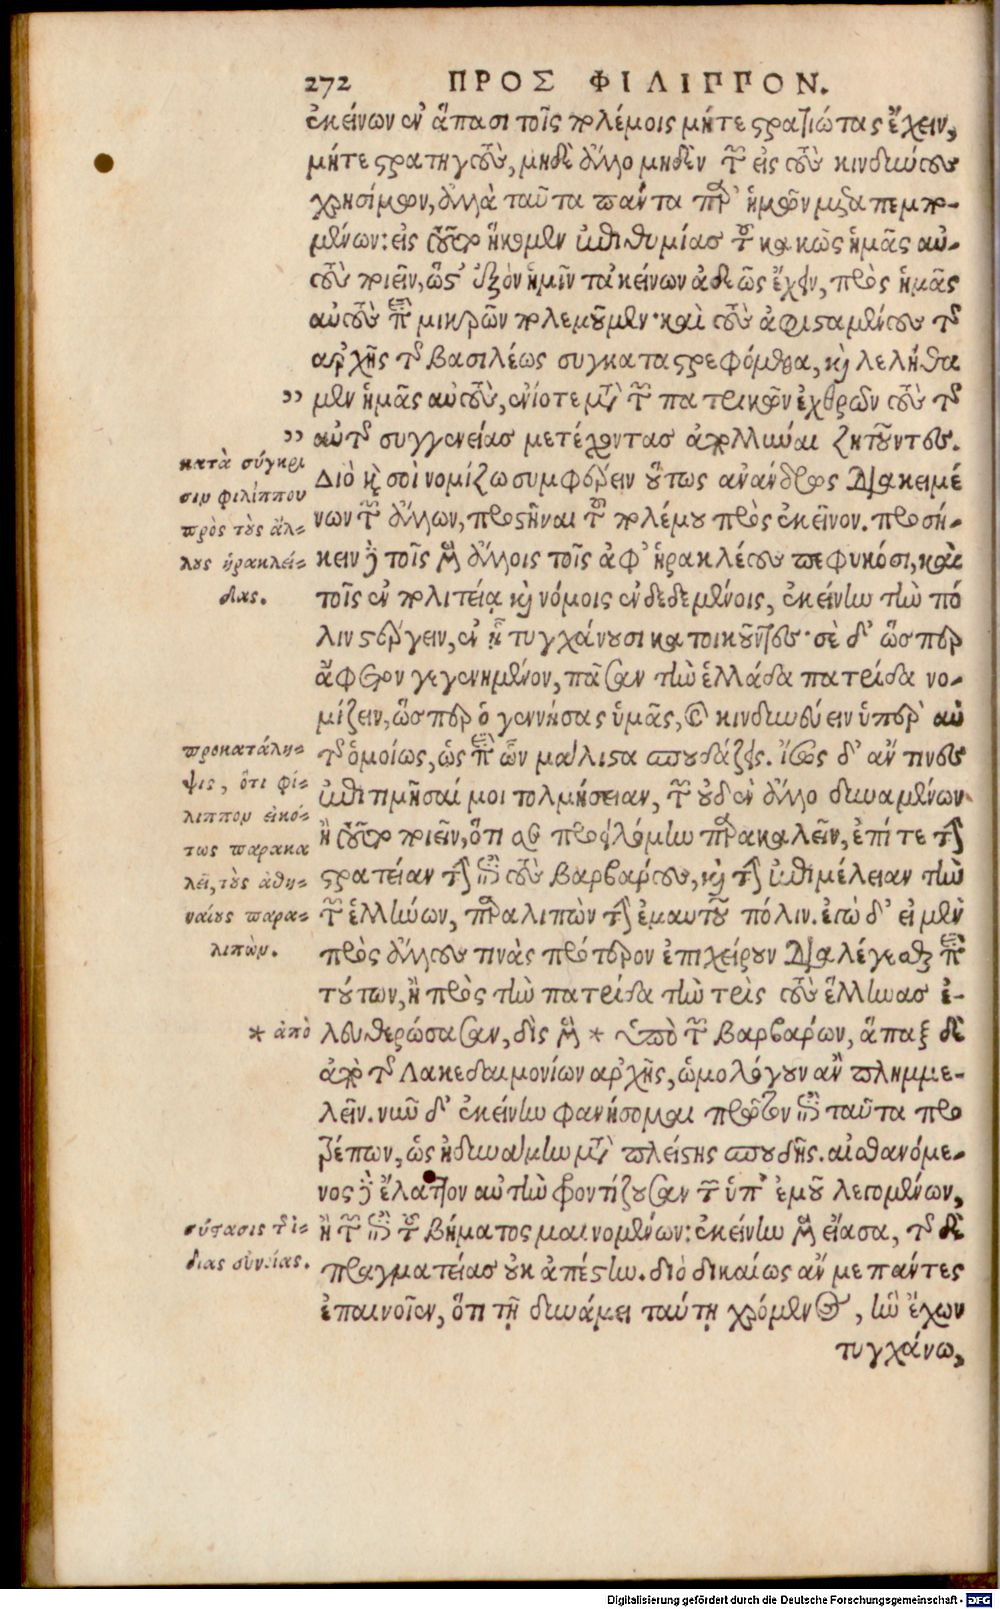 272 ΠΡΟΣ ΦΙΛΙΠΠΟΝ.
ἐκείνων ἐν ἅπασι τοῖς πολέμοις μήτε στρατιώτας ἔχειν,
μήτε στρατηγοὺς, μηδὲ ἄλλο μηδὲν τῶν εἰς τοὺς κινδύνους
χρησίμων, ἀλλὰ ταῦτα πάντα παρ' ἡμῶν μεταπεμπο-
μένων: εἰς τοῦτο ἥκομεν ἐπιθυμίας τοῦ κακῶς ἡμᾶς αὐ-
τοὺς ποιεῖν, ὥστ' ἐξὸν ἡμῖν τἀκείνων ἀδεῶς ἔχειν, πρὸς ἡμᾶς
αὐτοὺς περὶ μικρῶν πολεμοῦμεν· καὶ τοὺς ἀφισταμένους τῆς
ἀρχῆς τῆς βασιλέως συγκαταστρεφόμεθα, καὶ λελήθα
” μεν ἡμᾶς αὐτοὺς, ἐνίοτε μετὰ τῶν πατρικῶν ἐχθρῶν τοὺς τῆς
” αὐτῆς συγγενείας μετέχοντας ἀπολλύναι ζητοῦντες.
κατὰ σύγκρι
Διὸ καὶ σοὶ νομίζω συμφέρειν οὕτως ἀνάνδρως διακειμέ
σιν φιλίππου
νων τῶν ἄλλων, προστῆναι τοῦ πολέμου πρὸς ἐκεῖνον. προσή-
πρὸς τοὺς ἄλ-
λους ἡρακλεί-
κειν δὲ τοῖς μὲν ἄλλοις τοῖς ἀφ' ἡρακλέους πεφυκόσι, καὶ
δας.
τοῖς ἐν πολιτείᾳ καὶ νόμοις ἐνδεδεμένοις, ἐκείνην τὴν πό
λιν στέργειν, ἐν ᾗ τυγχάνουσι κατοικοῦντες· σὲ δ' ὥσπερ
ἄφετον γεγενημένον, πᾶσαν τὴν ἑλλάδα πατρίδα νο-
μίζειν, ὥσπερ ὁ γεννήσας ὑμᾶς, καὶ κινδυνεύειν ὑπὲρ αὐ
προκατάλη-
τῆς ὁμοίως, ὡς περὶ ὧν μάλιστα σπουδάζεις. ἴσως δ' ἄν τινες
ψις, ὅτι φί-
ἐπιτιμῆσαί μοι τολμήσειαν, τῶν οὐδὲν ἄλλο δυναμένων
λιππον εἰκό-
ἢ τοῦτο ποιεῖν, ὅτι σὲ προειλόμην παρακαλεῖν, ἐπί τε τὴν
τως παρακα
λεῖ, τοὺς ἀθη-
στρατείαν τὴν ἐπὶ τοὺς βαρβάρους, καὶ τὴν ἐπιμέλειαν τὴν
ναίους παρα-
τῶν ἑλλήνων, παραλιπὼν τὴν ἐμαυτοῦ πόλιν. ἐγὼ δ' εἰ μὲν
λιπὼν.
πρὸς ἄλλους τινὰς πρότερον ἐπιχείρουν διαλέγεσθαι περὶ
τούτων, ἢ πρὸς τὴν πατρίδα τὴν τρὶς τοὺς ἕλληνας ἐ-
* ἀπὸ
λευθερώσασαν, δὶς μὲν * ὑπὸ τῶν βαρβάρων, ἅπαξ δὲ
ἀπὸ τῆς Λακεδαιμονίων ἀρχῆς, ὡμολόγουν ἂν πλημμε-
λεῖν. νῦν δ' ἐκείνην φανήσομαι πρῶτον ἐπὶ ταῦτα προ
τρέπων, ὡς ἠδυνάμην μετὰ πλείστης σπουδῆς. αἰσθανόμε-
νος δὲ ἔλαττον αὐτὴν φροντίζουσαν τῶν ὑπ' ἐμοῦ λεγομένων,
σύστασις τῆς ἰ-
ἢ τῶν ἐπὶ τοῦ βήματος μαινομένων: ἐκείνην μὲν εἴασα, τῆς δὲ
δίας συνείας.
πραγματείας οὐκ ἀπέστην. διὸ δικαίως ἄν με πάντες
ἐπαινοῖεν, ὅτι τῇ δυνάμει ταύτῃ χρώμενος, ἣν ἔχων
τυγχάνω,
Digitalisierung gefördert durch die Deutsche Forschungsgemeinschaft - DFG